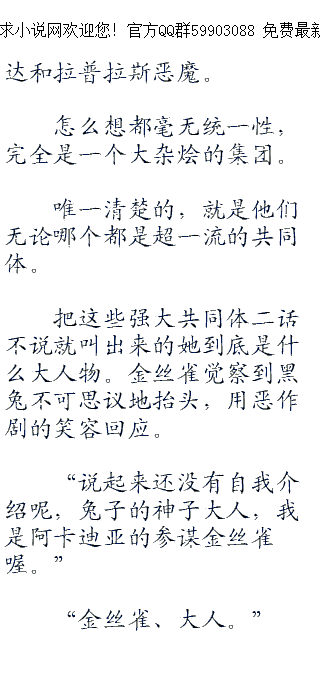 求小说网欢迎您！官方QQ群59903088 免费最新
达和拉普拉斯恶魔。
怎么想都毫无统一性，
完全是一个大杂烩的集团。
唯一清楚的，就是他们
无论哪个都是超一流的共同
体。
把这些强大共同体二话
不说就叫出来的她到底是什
么大人物。金丝雀觉察到黑
兔不可思议地抬头，用恶作
剧的笑容回应。
“说起来还没有自我介
绍呢，兔子的神子大人，我
是阿卡迪亚的参谋金丝雀
喔。”
“金丝雀、大人。”